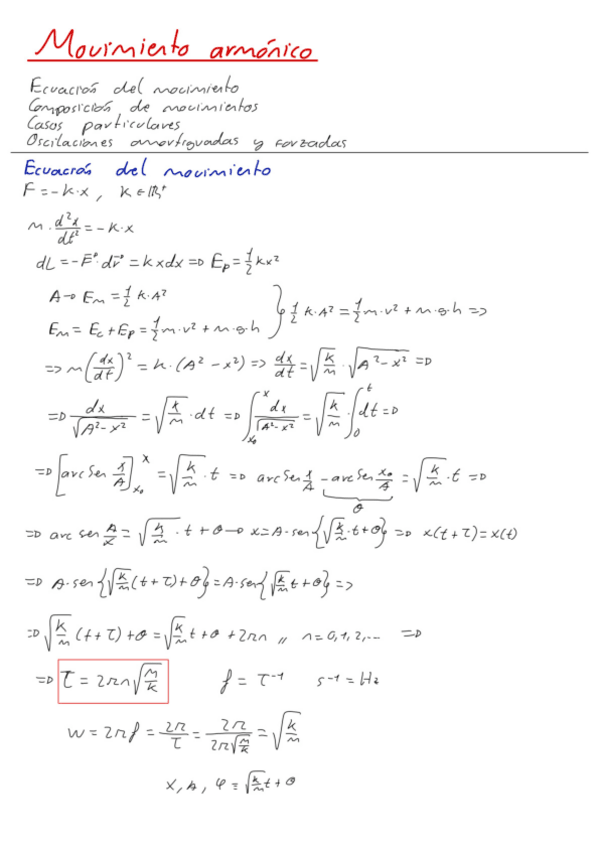 Movimiento armónico
Ecuación del movimiento
Composición de movimientos
Casos particulares
Oscilaciones amortiguadas y forzadas
Ecuación del movimiento
F = -k·x , k ∈ ℝ⁺
m · d²x/dt² = -k·x
dL = -F⃗·dr⃗ = kxdx => Ep = 1/2 kx²
A → Em = 1/2 k·A²
Em = Ec + Ep = 1/2 m·v² + m·g·h } 1/2 k·A² = 1/2 m·v² + m·g·h =>
=> m(dx/dt)² = k·(A² - x²) => dx/dt = √(k/m) · √(A² - x²) =>
=> dx/√(A² - x²) = √(k/m) · dt => ∫_{x₀}^{x} dx/√(A² - x²) = √(k/m) ∫_0^t dt =>
=> [arc sen x/A]_{x₀}^{x} = √(k/m) · t => arc sen x/A - arc sen x₀/A = √(k/m) · t =>
θ
=> arc sen A/x = √(k/m) · t + θ → x = A·sen{√(k/m)·t + θ} => x(t + τ) = x(t)
=> A·sen{√(k/m)(t + τ) + θ} = A·sen{√(k/m)t + θ} =>
=> √(k/m)(t + τ) + θ = √(k/m)t + θ + 2πn // n = 0, 1, 2, ... =>
=> τ = 2πn√(m/k) f = τ⁻¹ s⁻¹ = Hz
w = 2πf = 2π/τ = 2π/(2π√(m/k)) = √(k/m)
x, A, φ = √(k/m)t + θ